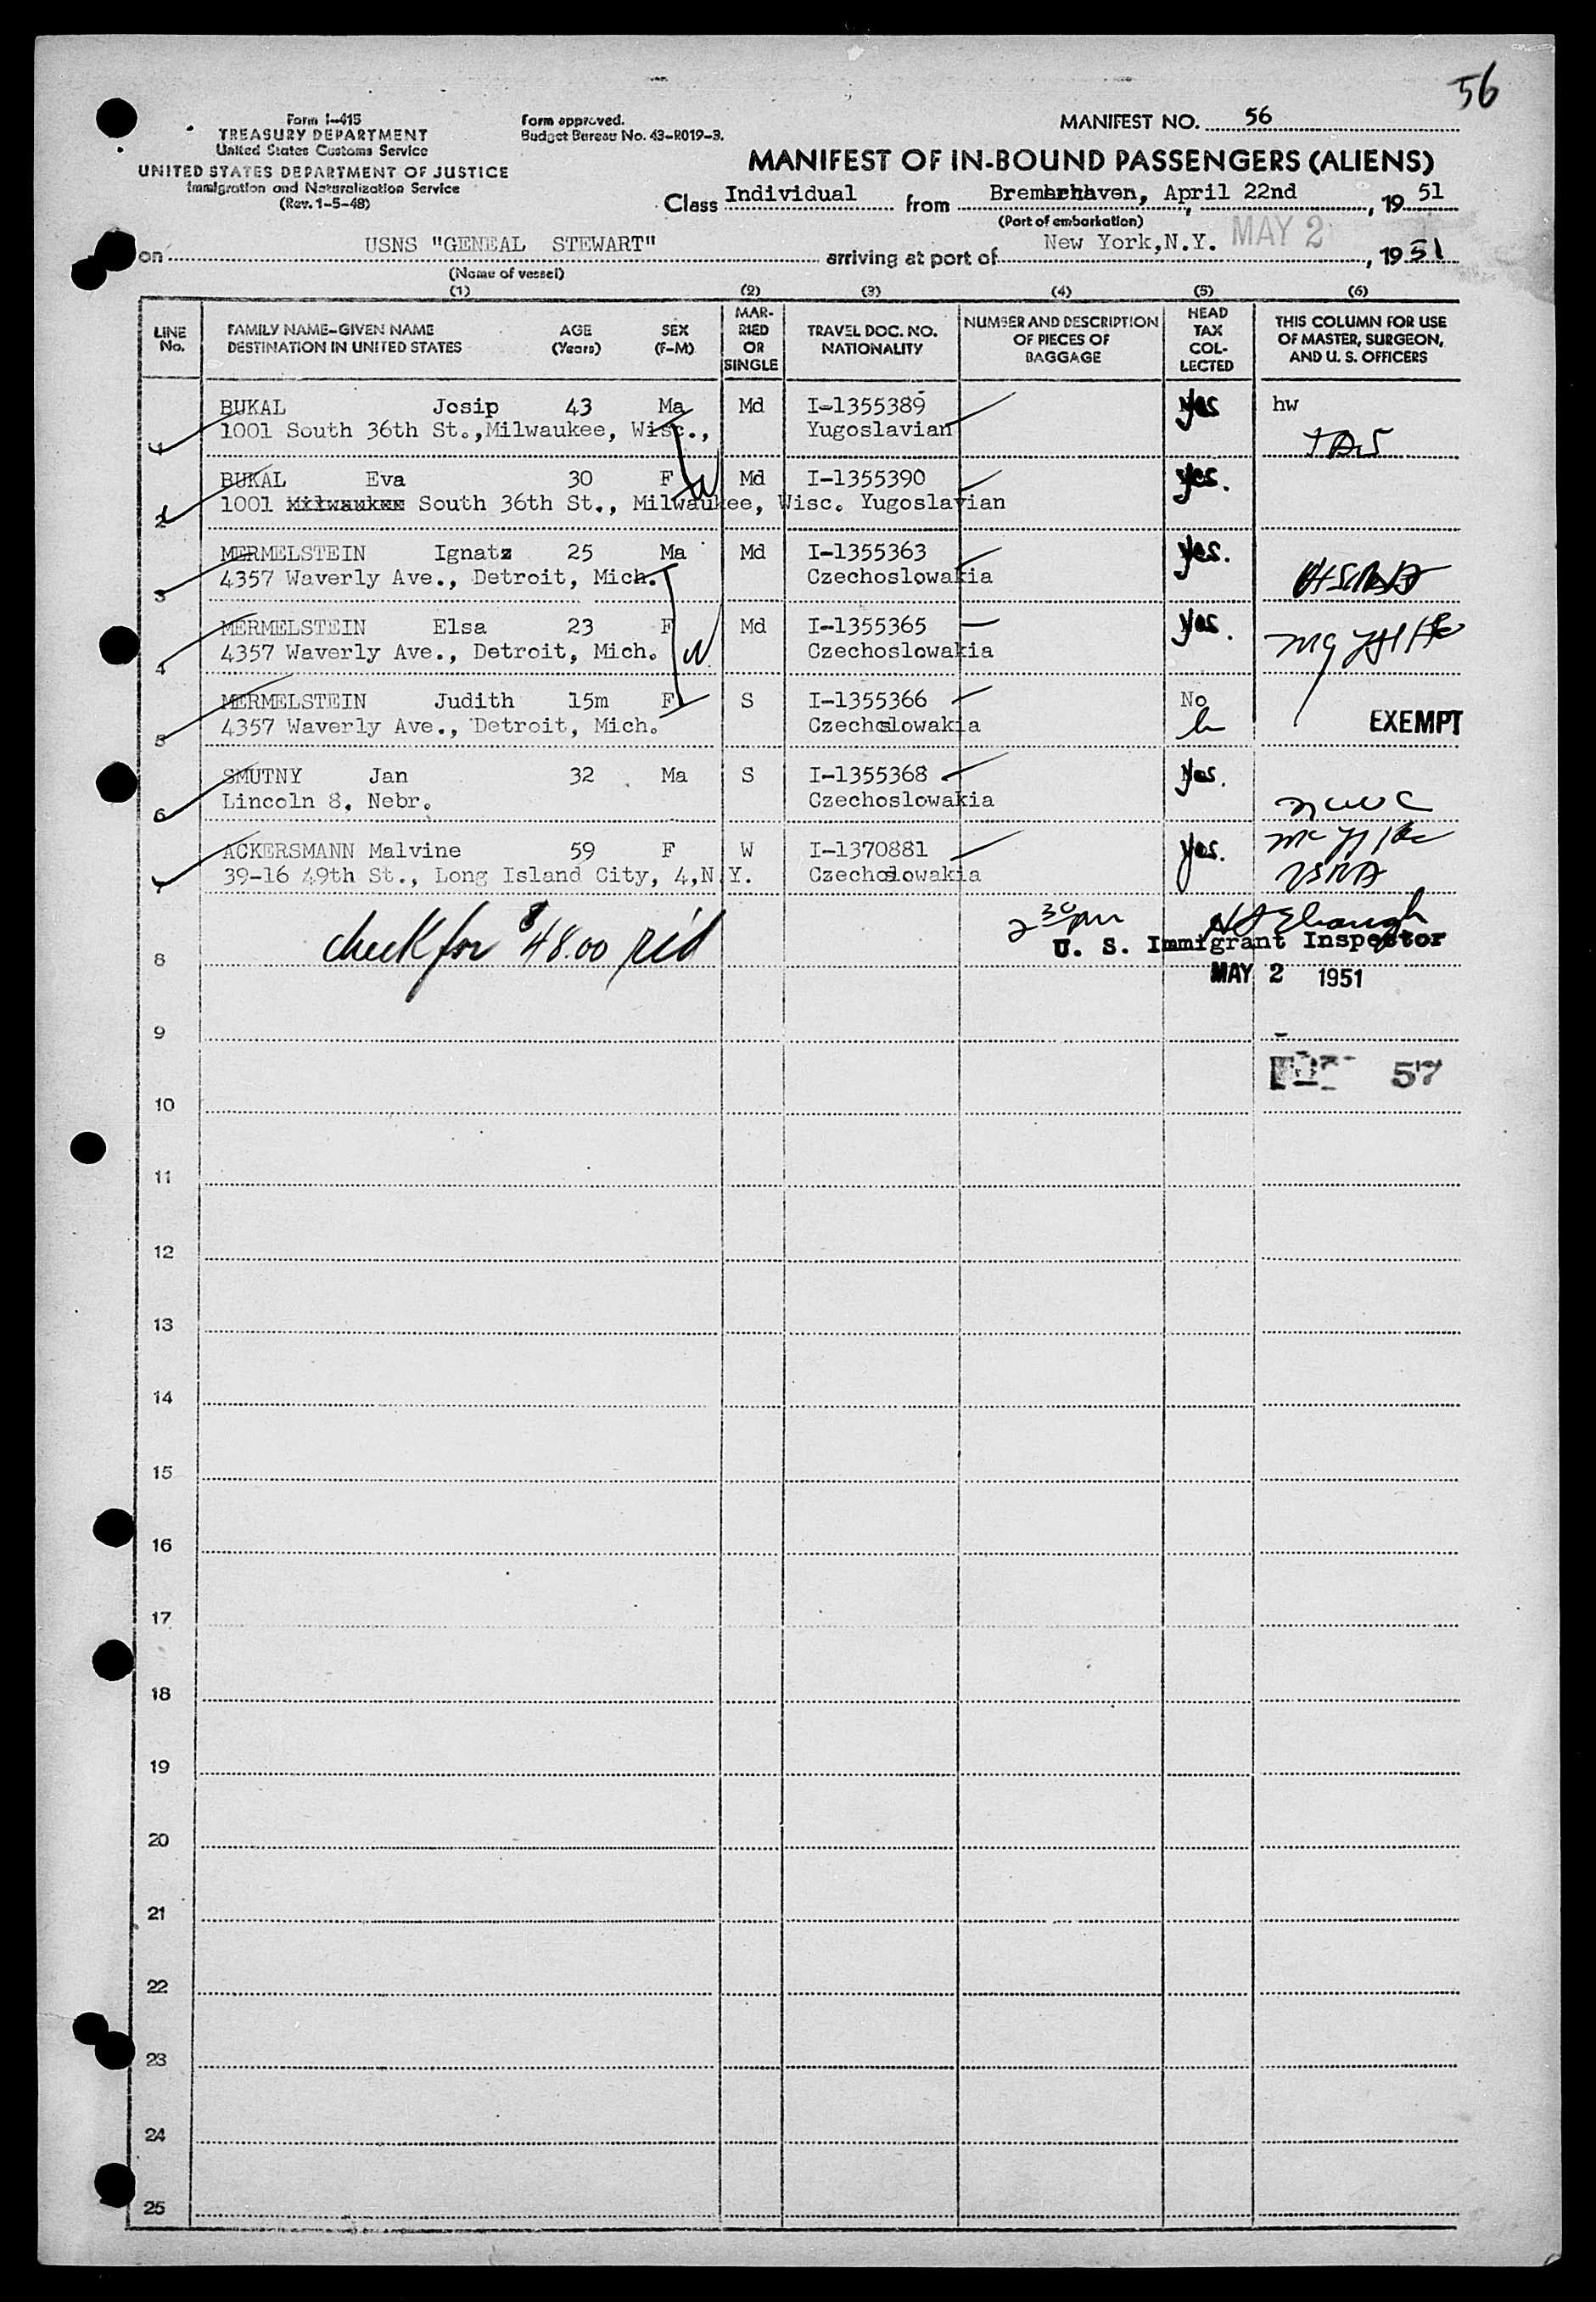 56
Form I-415
TREASURY DEPARTMENT
United States Customs Service
UNITED STATES DEPARTMENT OF JUSTICE
Immigration and Naturalization Service
(Rev. 1-5-48)
Form approved.
Budget Bureau No. 43-R019-3.
MANIFEST NO. 56
MANIFEST OF IN-BOUND PASSENGERS (ALIENS)
Class Individual from Bremerhaven, April 22nd, 1951
(Port of embarkation)
on USNS "GENEAL STEWART" arriving at port of New York,N.Y. MAY 2, 1951
(Name of vessel)
(1) (2) (3) (4) (5) (6)
LINE No.
FAMILY NAME-GIVEN NAME AGE SEX
DESTINATION IN UNITED STATES (Years) (F-M)
MAR-RIED OR SINGLE
TRAVEL DOC. NO. NATIONALITY
NUMBER AND DESCRIPTION OF PIECES OF BAGGAGE
HEAD TAX COL-LECTED
THIS COLUMN FOR USE OF MASTER, SURGEON, AND U. S. OFFICERS
1 BUKAL Josip 43 Ma Md I-1355389 yes hw
1001 South 36th St.,Milwaukee, Wisc., Yugoslavian
2 BUKAL Eva 30 F Md I-1355390 yes.
1001 Milwaukee South 36th St., Milwaukee, Wisc. Yugoslavian
3 MERMELSTEIN Ignatz 25 Ma Md I-1355363 yes.
4357 Waverly Ave., Detroit, Mich. Czechoslowakia
4 MERMELSTEIN Elsa 23 F Md I-1355365 yes.
4357 Waverly Ave., Detroit, Mich. Czechoslowakia
5 MERMELSTEIN Judith 15m F S I-1355366 No
4357 Waverly Ave., Detroit, Mich. Czechoslowakia EXEMPT
6 SMUTNY Jan 32 Ma S I-1355368 yes.
Lincoln 8, Nebr. Czechoslowakia
7 ACKERSMANN Malvine 59 F W I-1370881 yes.
39-16 49th St., Long Island City, 4,N.Y. Czechoslowakia
8 check for $48.00 rec'd 2 30 pm
U. S. Immigrant Inspector
MAY 2 1951
9
57
10
11
12
13
14
15
16
17
18
19
20
21
22
23
24
25